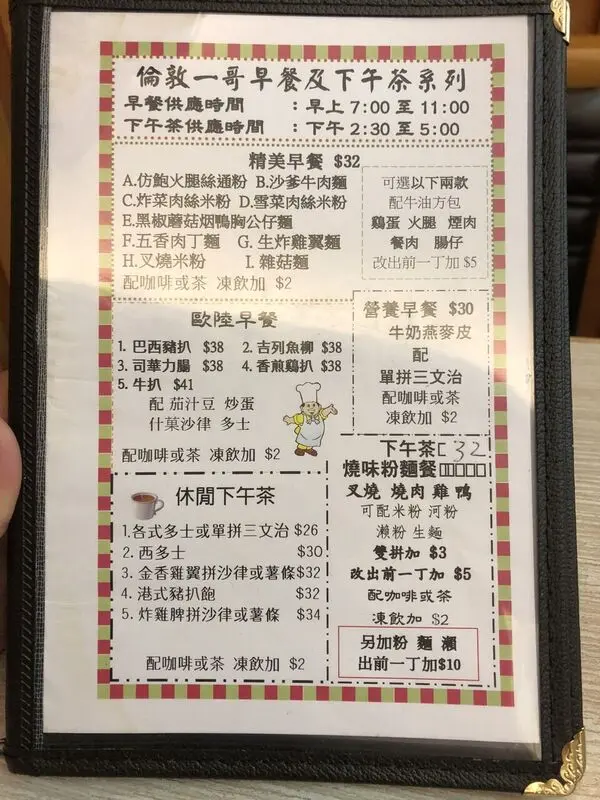 倫敦一哥早餐及下午茶系列
早餐供應時間 : 早上 7:00 至 11:00
下午茶供應時間 : 下午 2:30 至 5:00
精美早餐 $32
A.仿鮑火腿絲通粉 B.沙爹牛肉麵
C.炸菜肉絲米粉 D.雪菜肉絲米粉
E.黑椒蘑菇烟鴨胸公仔麵
F.五香肉丁麵 G. 生炸雞翼麵
H.叉燒米粉 I. 雜菇麵
配咖啡或茶 凍飲加 $2
可選以下兩款
配牛油方包
鷄蛋 火腿 煙肉
餐肉 腸仔
改出前一丁加 $5
歐陸早餐
1. 巴西豬扒 $38 2. 吉列魚柳 $38
3. 司華力腸 $38 4. 香煎鷄扒 $38
5. 牛扒 $41
配 茄汁豆 炒蛋
什菓沙律 多士
配咖啡或茶 凍飲加 $2
營養早餐 $30
牛奶燕麥皮
配
單拼三文治
配咖啡或茶
凍飲加 $2
休閒下午茶
1.各式多士或單拼三文治 $26
2. 西多士 $30
3. 金香雞翼拼沙律或薯條 $32
4. 港式豬扒飽 $32
5. 炸雞脾拼沙律或薯條 $34
配咖啡或茶 凍飲加 $2
下午茶 32
燒味粉麵餐
叉燒 燒肉 雞 鴨
可配米粉 河粉
瀨粉 生麵
雙拼加 $3
改出前一丁加 $5
配咖啡或茶
凍飲加 $2
另加粉 麵 瀨
出前一丁加$10